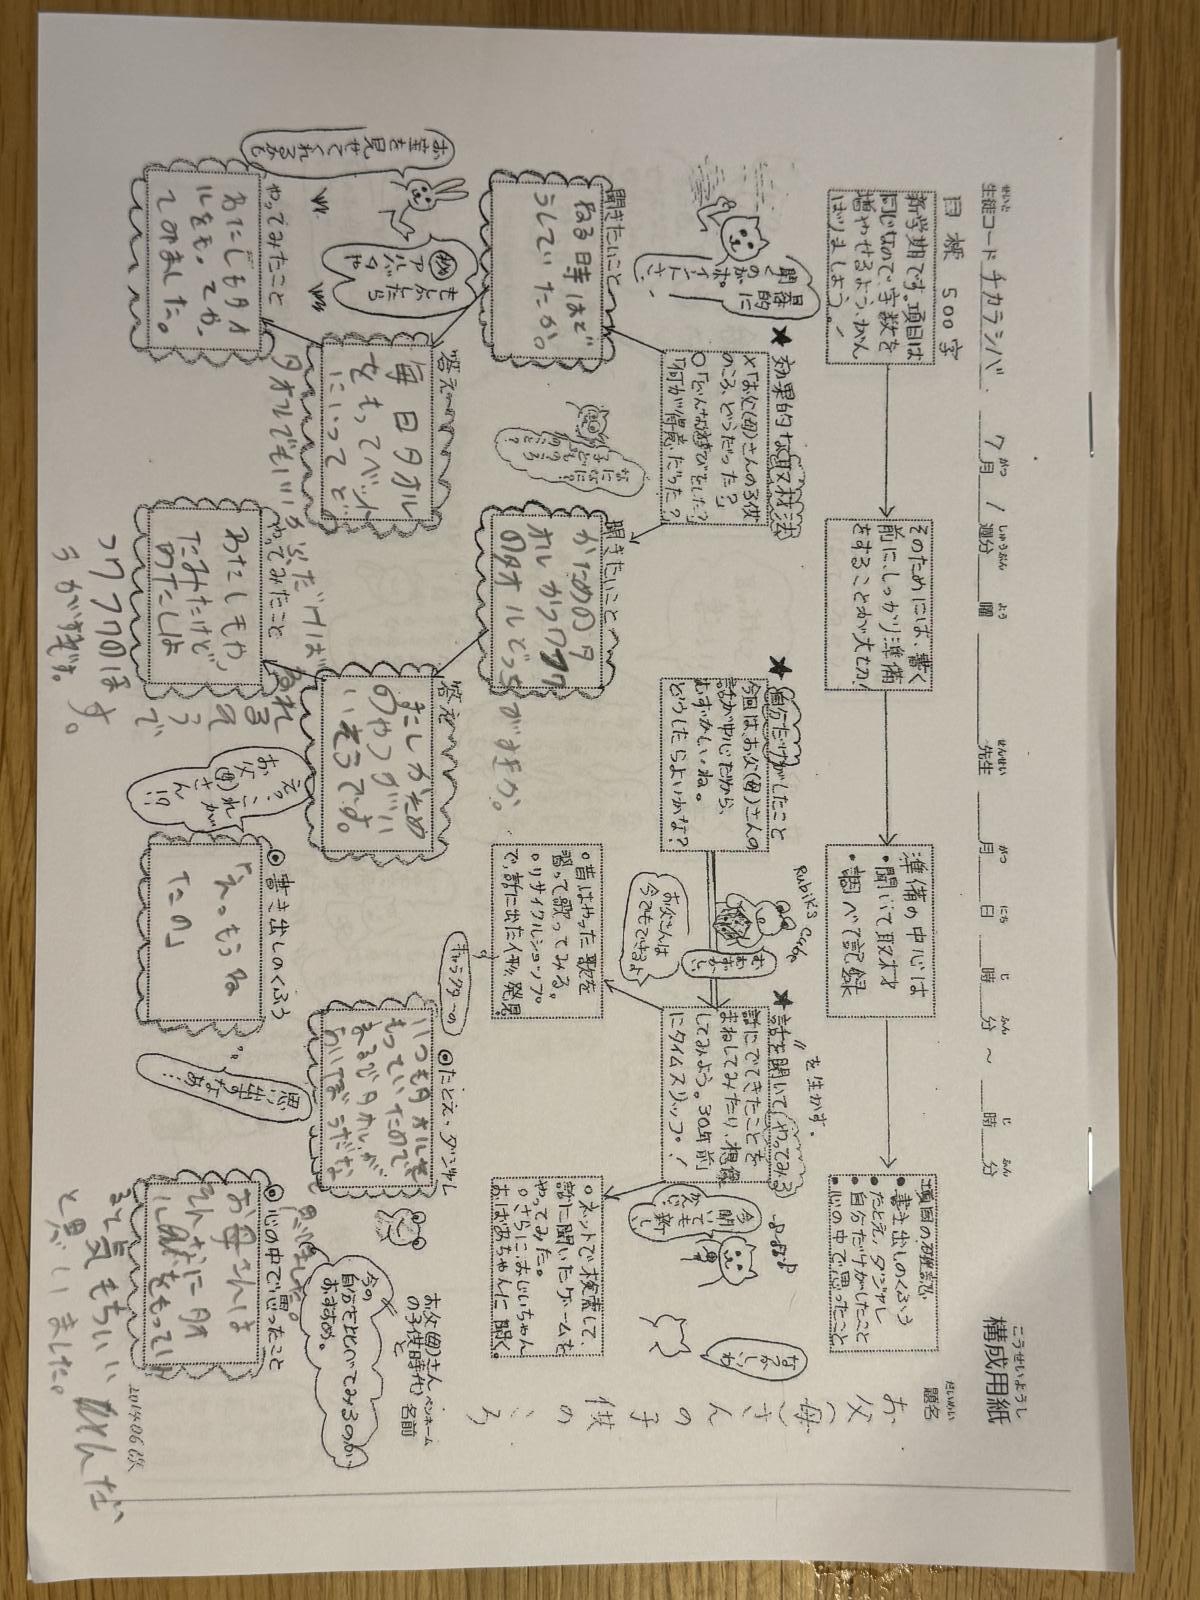 こうせいようし
構成用紙
せいと
生徒コード チカラシバ 7月 1週分 曜 先生 月 日 時 分 ~ 時 分
がつ しゅうぶん よう せんせい がつ にち じ ふん じ ふん
だいめい
題名
お父(母)さんの子供のころ
ペンネーム
名前
目標 500字
新学期です。項目は
同じなので、字数を
増やせるよう、がん
ばりましょう!
そのためには、書く
前に、しっかり準備
をすることが大切!
準備の中心は
・聞いて取材
・調べて記録
項目の確認
・書き出しのくふう
・たとえ、ダジャレ
・自分だけがしたこと
・心の中で思ったこと
★効果的な取材法
×「お父(母)さんの子供
のころ、どうだった?」
○「どんな遊びをした?」
「何が得意だった?」
具体的に
聞くの
がポイ
ントさ。
★自分だけがしたこと
今回は、お父(母)さんの
話が中心だから、
むずかしいね。
どうしたらよいかな?
Rubik's Cube
お父さんは
今でもできるよ
★話を聞いてやってみる
〃 を生かす。
話にでてきたことを
まねしてみたり、想像
してみよう。30年前
にタイムスリップ!
○昔はやった歌を
習って歌ってみる。
○リサイクルショップ
で、話に出た人形発見
○ネットで検索して、
話に聞いたゲームを
やってみた。
○さらに、おじいちゃん
おばあちゃんに聞く。
今聞い
ても
新し
い
なつかしいわ
聞きたいこと
ねる時はど
うしていたか。
聞きたいこと
かためのタ
オルかフワフワ
のタオルどっちがすきか。
答え
毎日タオル
をもってベット
にいってど
タオルでもいいら
答え
またしかため
のやつがいい
いそうです。
やってみたこと
わたしもタオ
ルをもってか
てのみました。
やってみたこと
わたしもやっ
てみたけど
わたしは
フワフワのほ
うがすきです。
お昔を見せてくれるかも
もしかしたら
アルバムや
えっ、これ
がお父(母)
さん!?
◎書き出しのくふう
「えっもうね
たの」
思い出すなあ…
◎たとえ・ダジャレ
キャラクターの
いつもタオルを
もっていたのて
まるでタオルが
あいぼうだな
と思いました。
今の
自分とくらべてみるのが
おすすめ。
お父(母)さん
の子供時代と
◎心の中で思ったこと
お母さんは
そんなにタオ
ルをもってい
て気もちいいかんだな
と思いました。
201406改